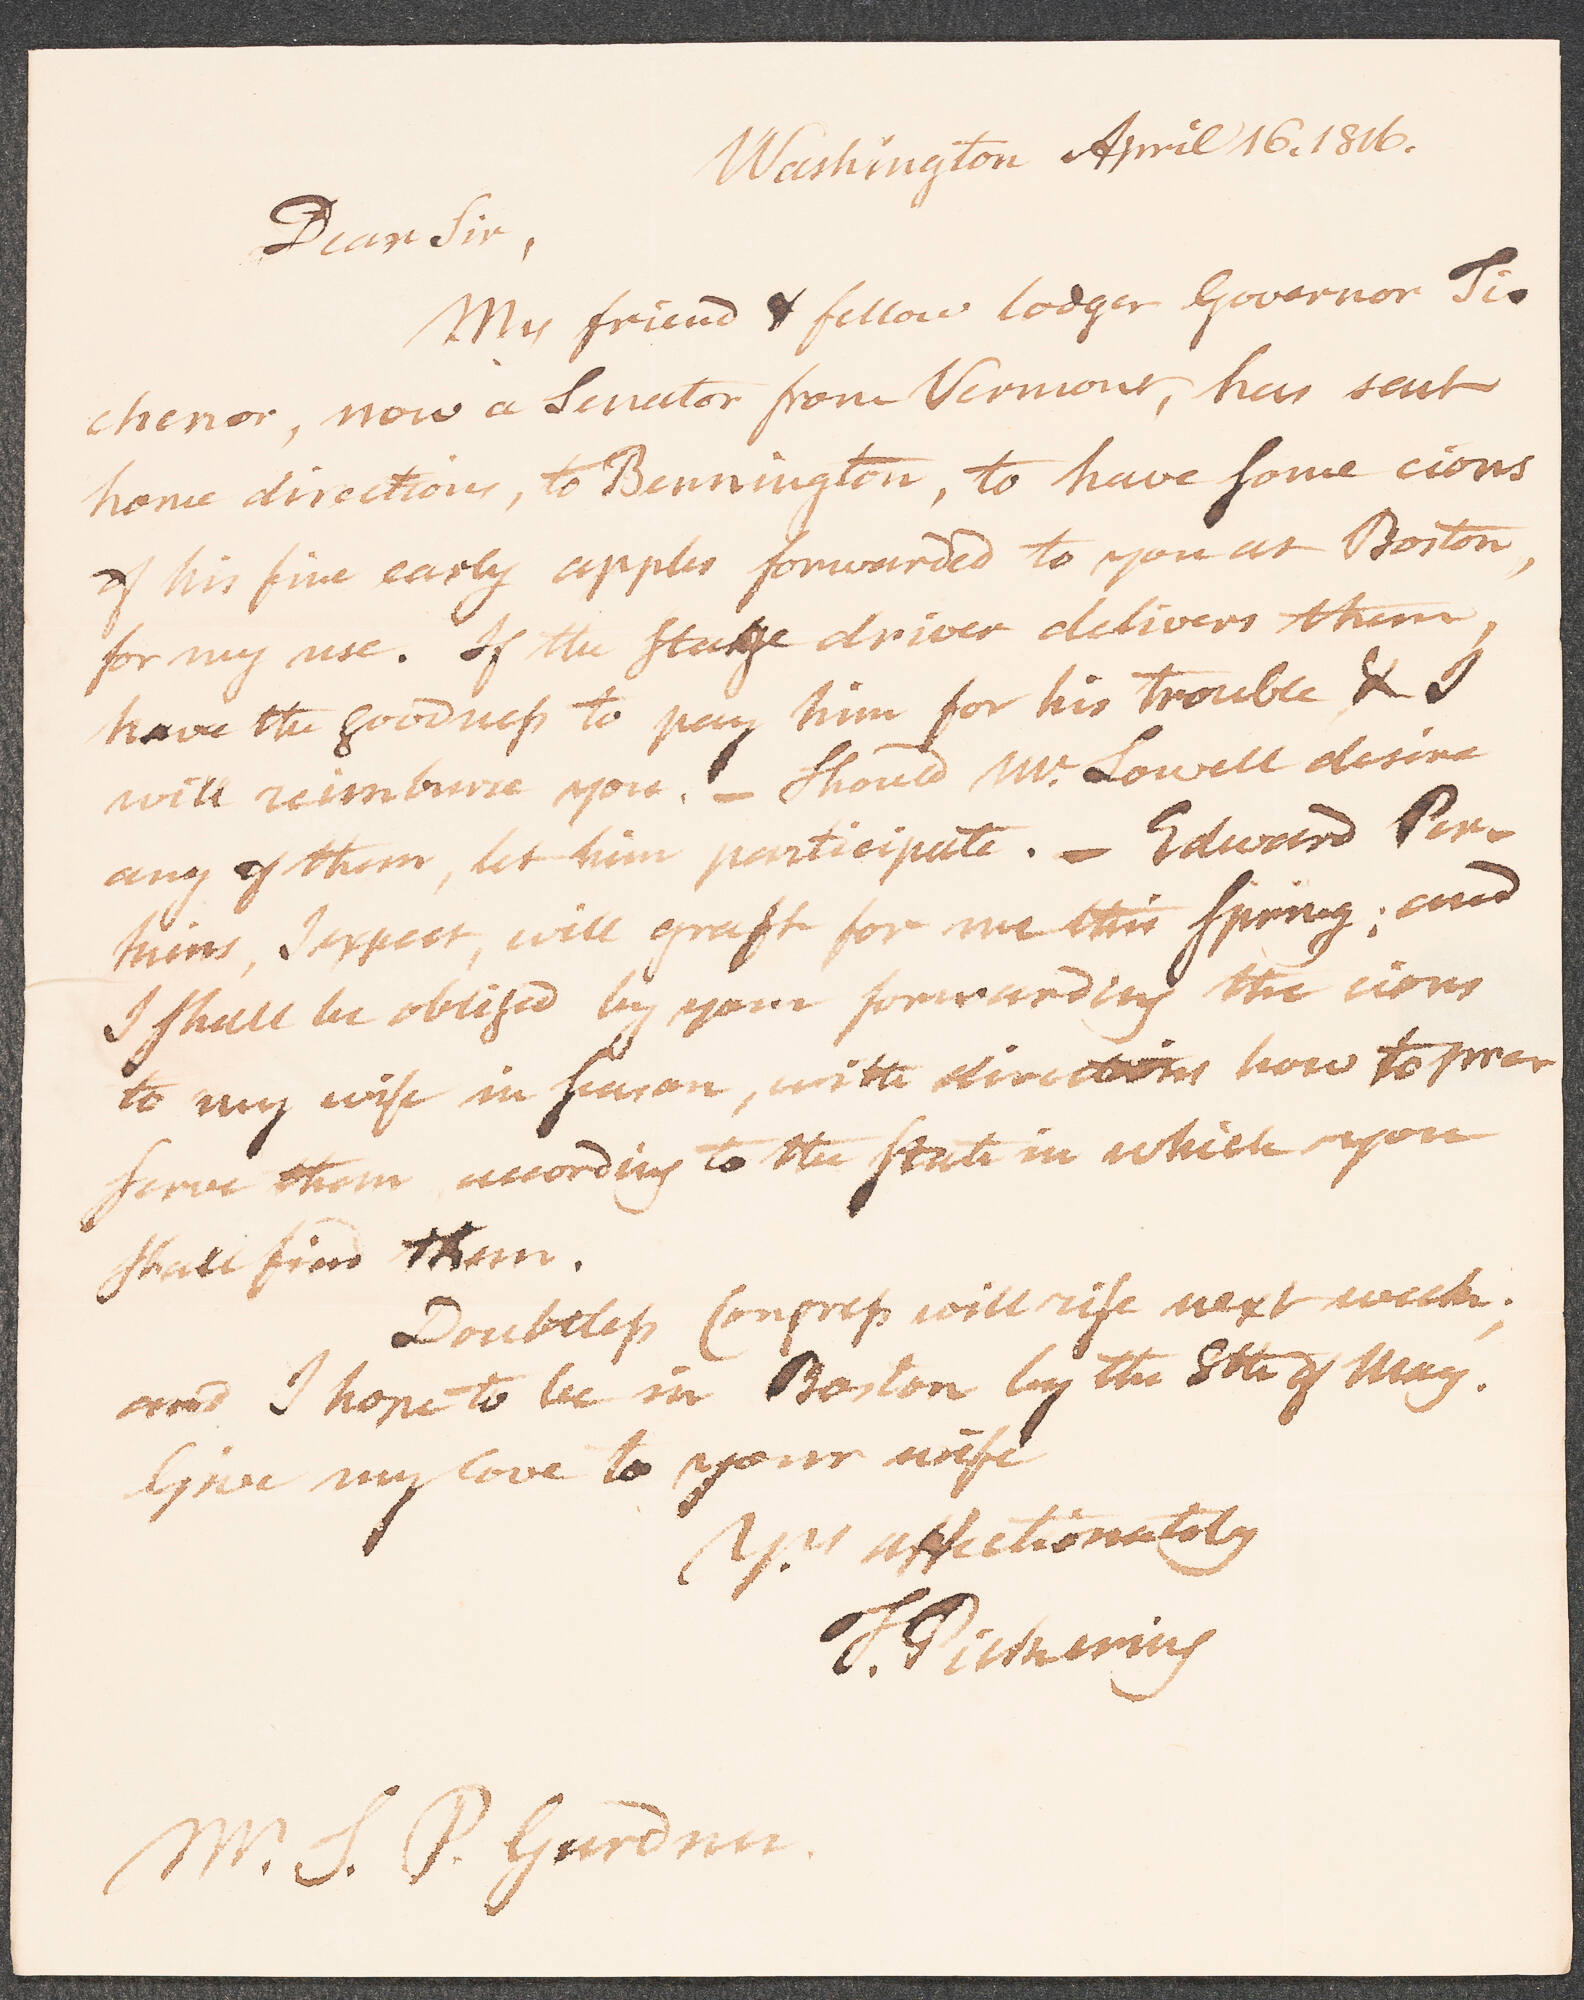 Washington April 16. 1816.
Dear Sir,
My friend & fellow lodger Governor Ti-
chenor, now a Senator from Vermont, has sent
home directions, to Bennington, to have some cions
of his fine early apples forwarded to you at Boston,
for my use. If the stage driver delivers them,
have the goodness to pay him for his trouble & I
will reimburse you. — Should Mr. Lowell desire
any of them, let him participate. — Edward Per-
kins, I expect, will graft for me this spring; and
I shall be obliged by your forwarding the cions
to my wife in season, with directions how to pre-
serve them according to the state in which you
shall find them.
Doubtless Congress will rise next week;
and I hope to be in Boston by the 8th of May.
Give my love to your wife
Yrs. affectionately
T. Pickering
Mr. S. P. Gardner.